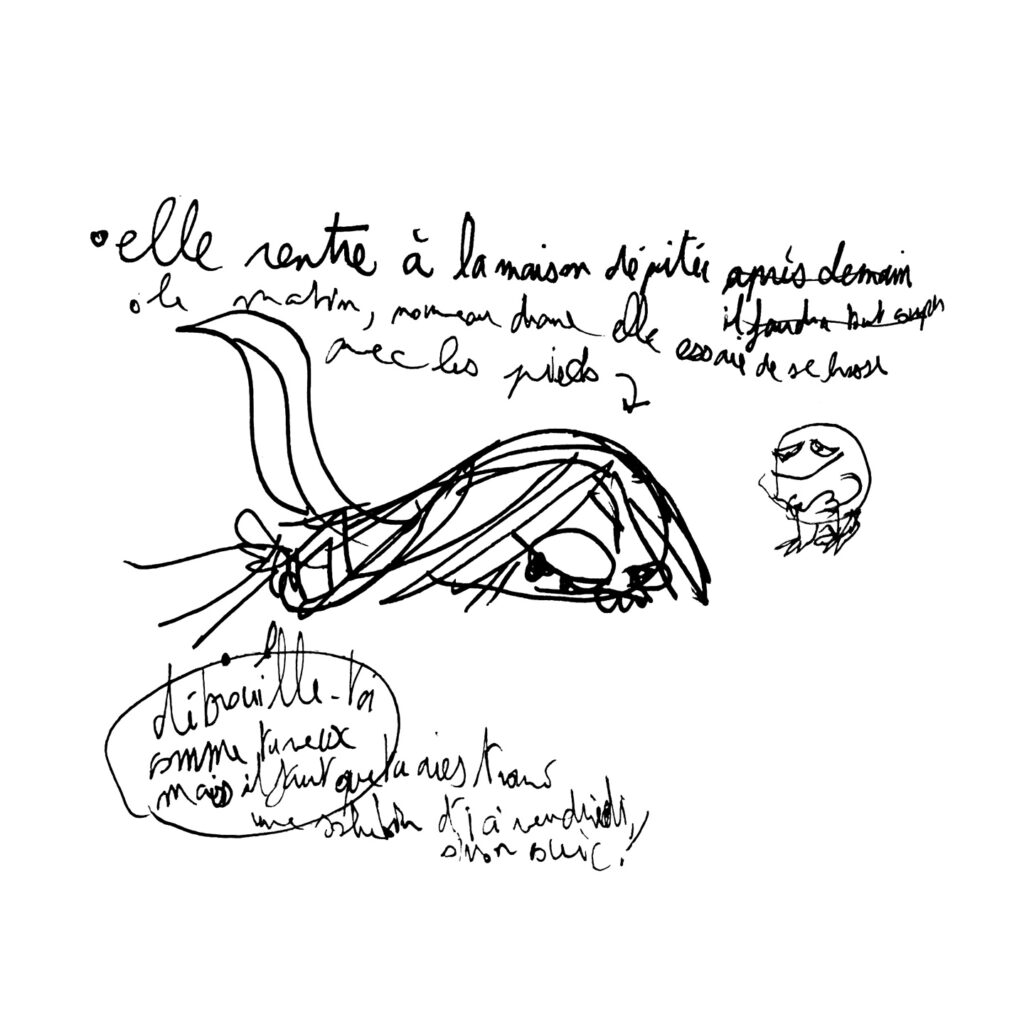 elle rentre à la maison dépitée après demain
il faudra tout
le matin, nouveau drame elle essaie de se
avec les pieds
débrouille-toi
comme tu veux
mais il faut que tu aies trouvé
une solution d'ici vendredi,
sinon couic!